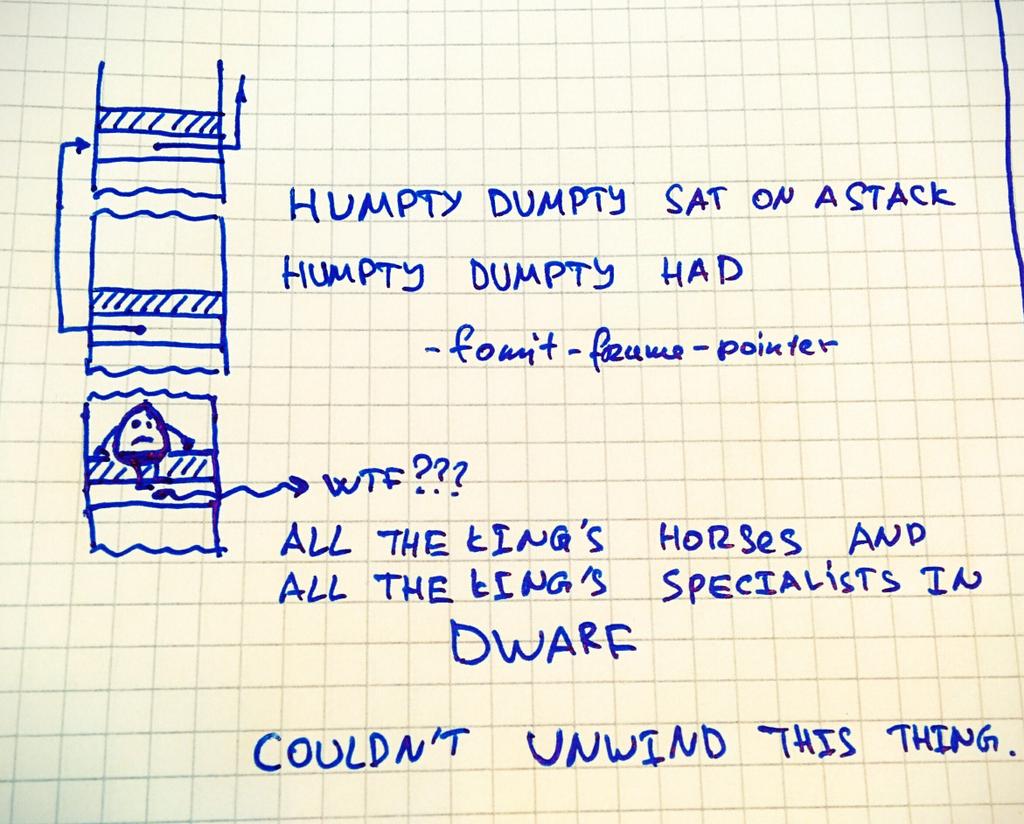 HUMPTY DUMPTY SAT ON A STACK
HUMPTY DUMPTY HAD
-fomit-frame-pointer
WTF???
ALL THE KING'S HORSES AND
ALL THE KING'S SPECIALISTS IN
DWARF
COULDN'T UNWIND THIS THING.